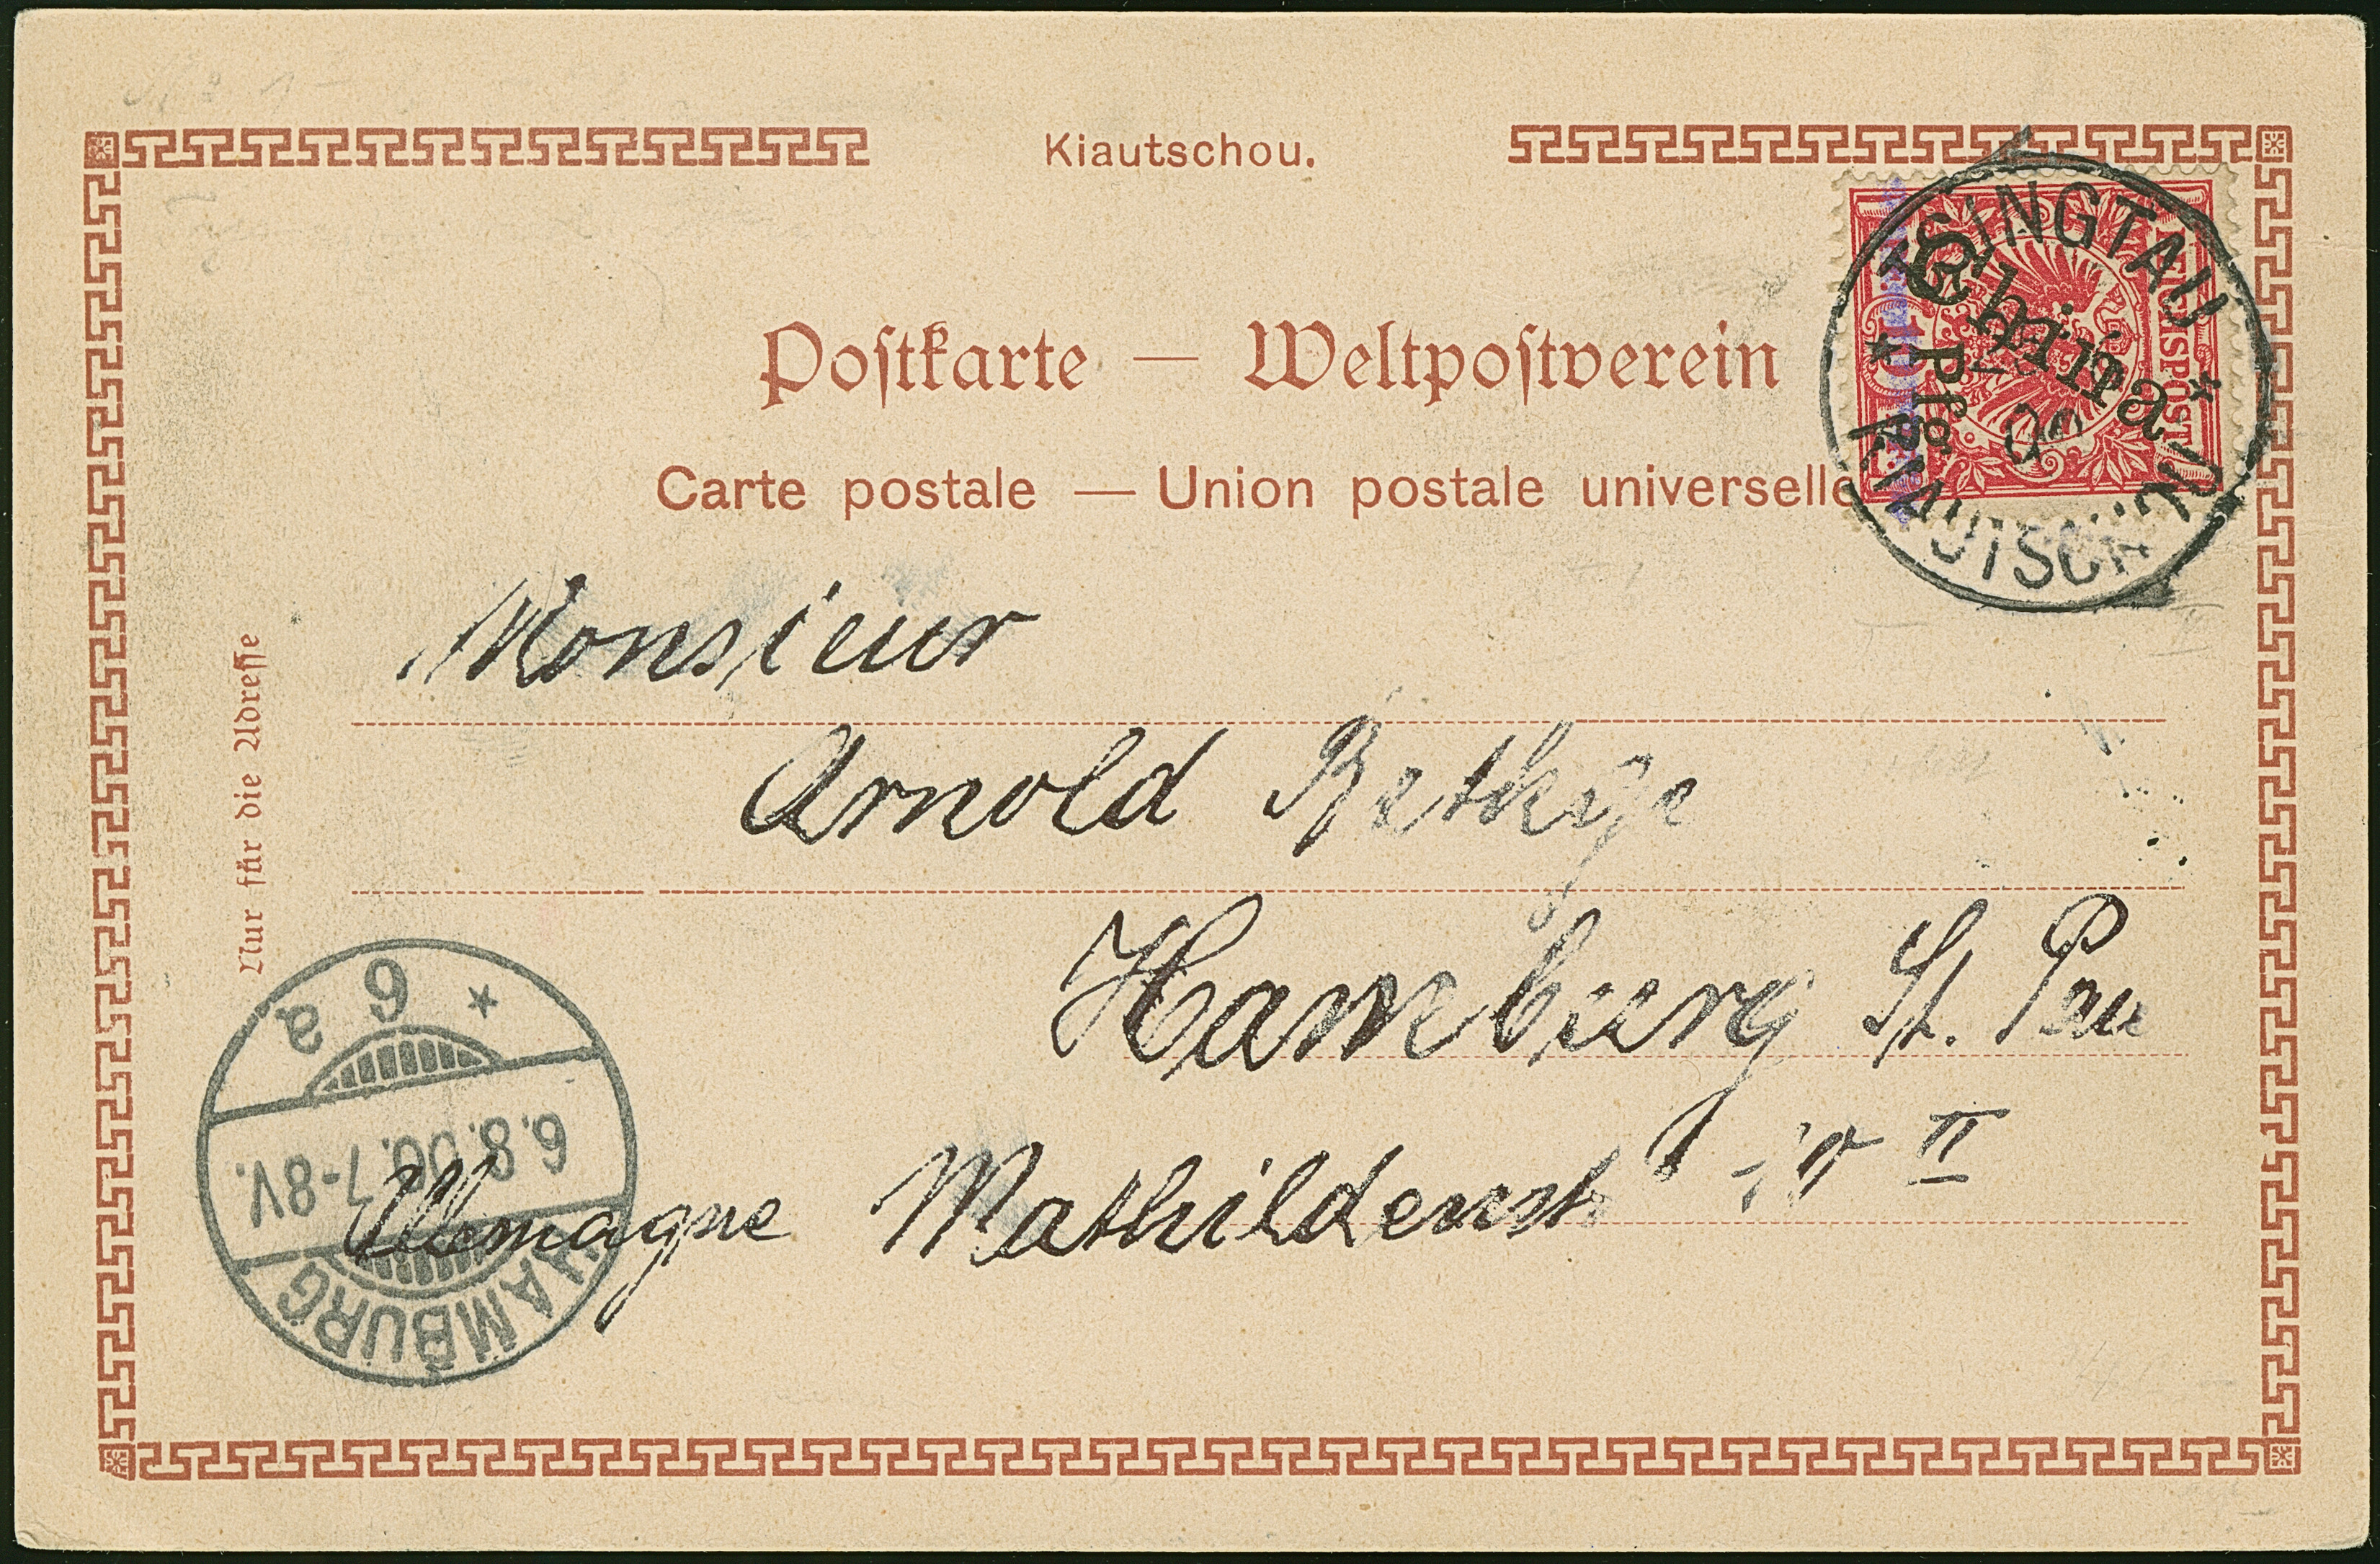 Kiautschou.
Postkarte — Weltpostverein
Carte postale — Union postale universelle
TSINGTAU
China
5 Pfg
REICHSPOST
KIAUTSCHOU
Monsieur
Arnold
Hamburg St. Pau
Mathildenstr II
Allemagne
Nur für die Adresse
HAMBURG
6.8.00.7-8V.
* 6 a